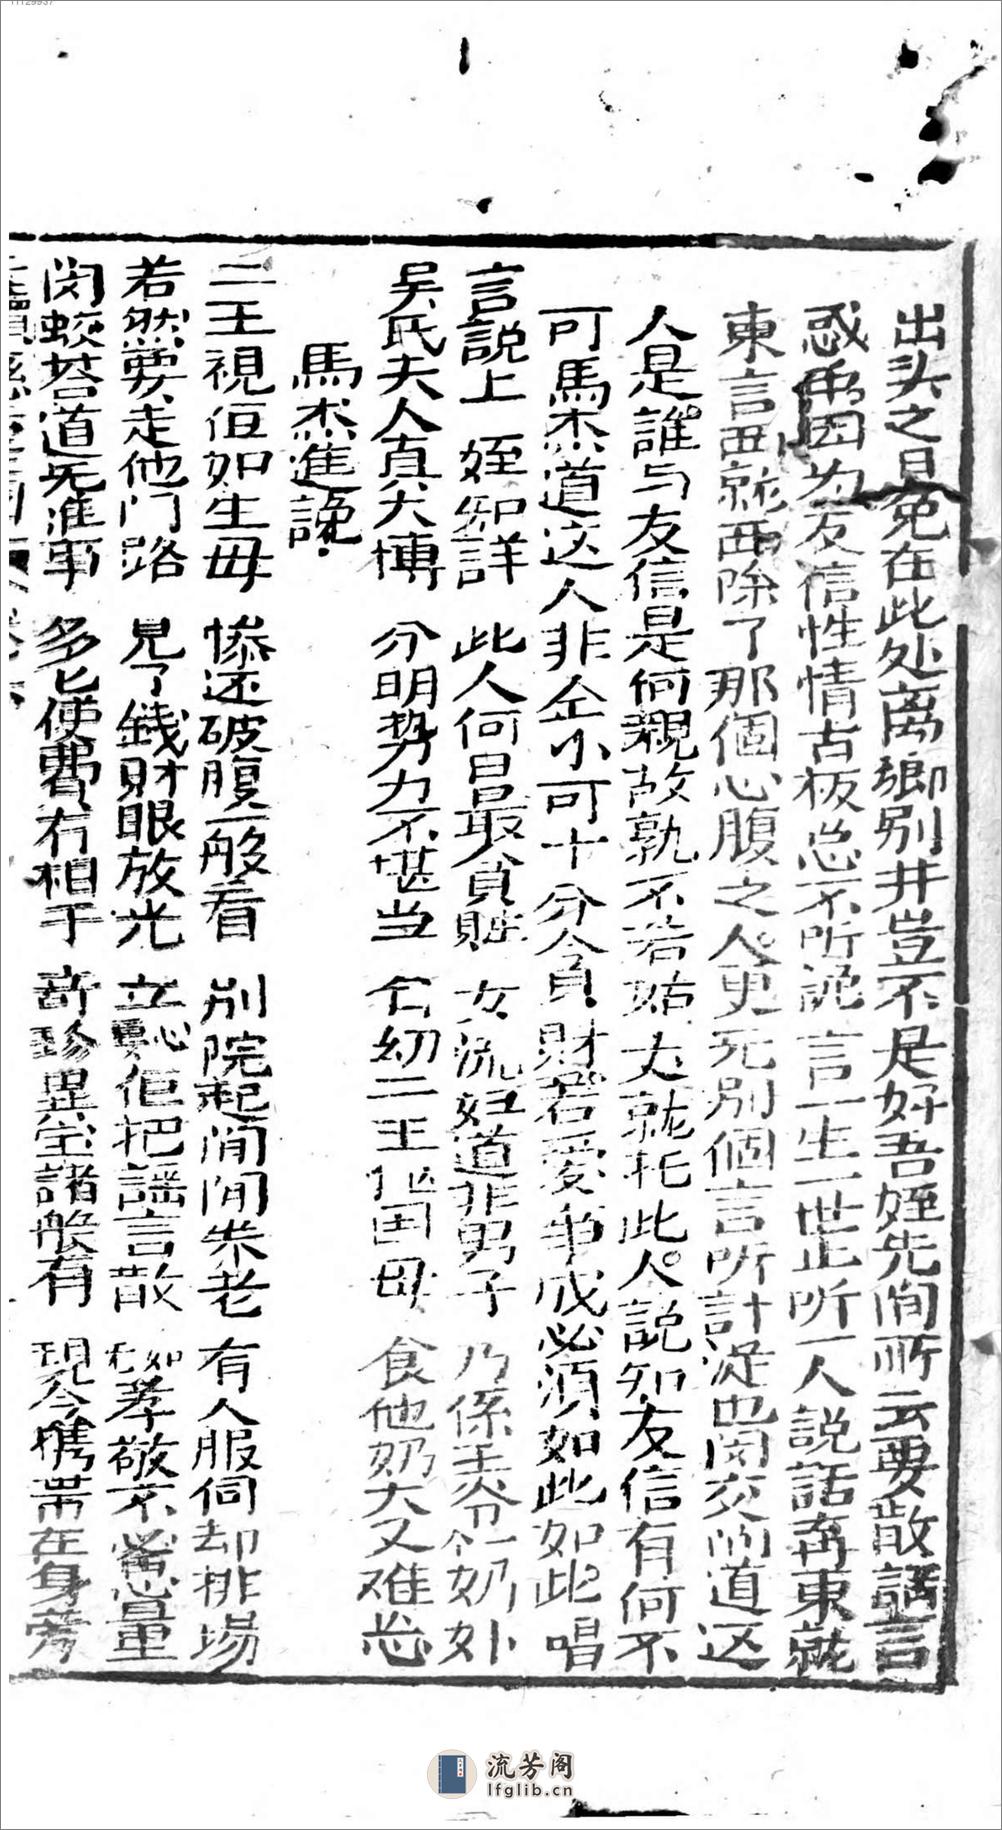 出头之日免在此处离鄉别井豈不是好吾姪先间所云要散謡言
惑因为友信性情古板总不听説言一生一世止听一人説話奔東就
東言西就西除了那個心腹之人更无别個言听計従也闵交问道这
人是誰与友信是何親故孰不若姑丈就托此人説知友信有何不
可馬杰道这人非仝小可十分贪財若爱争成必須如此如此唱
言説上 姪知詳 此人何日最貪賍 女流妇道非男子 乃係王爷个奶妳
吴氏夫人真大博 分明势力不堪当 名幼二王但国母 食他奶大又难忘
馬杰進説
二王視佢如生母 惨还破腹一般看 别院起间闲养老 有人服伺却排場
若然要走他門路 見了錢財眼放光 立點佢把謡言散 如孝敬不思量
闵蛟荅道无准事 多匕使費冇相干 奇珍異宝諸般有 現今携带在身旁